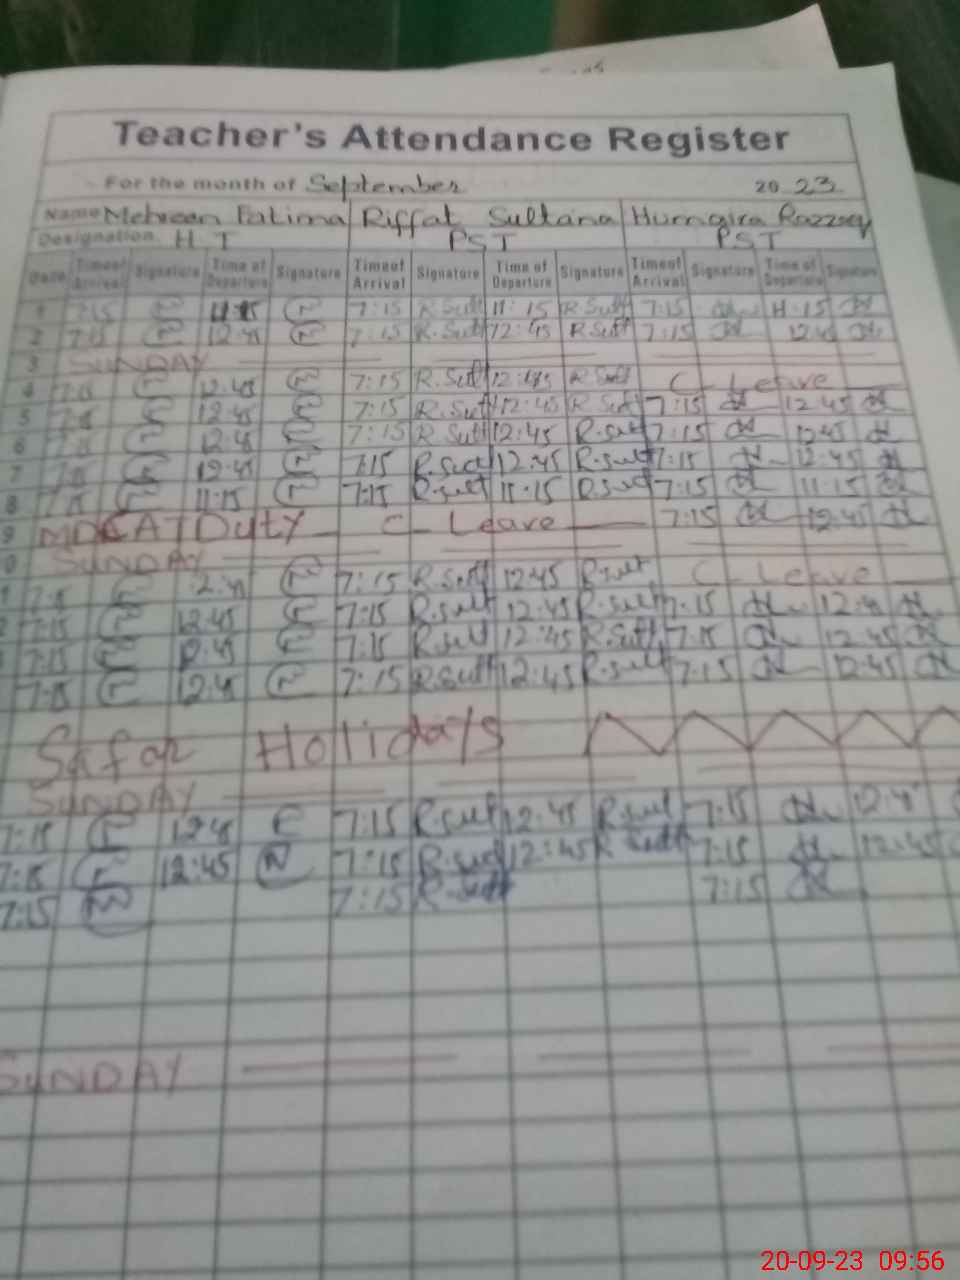 Teacher's Attendance Register
For the month of September 2023
Name Mehreen Fatima Riffat Sultana Humgira Razzaq
Designation H T PST PST
Date Time of Arrival Signature Time of Departure Signature Time of Arrival Signature Time of Departure Signature Time of Arrival Signature Time of Departure Signature
1 7:15 11:15 7:15 R.Sult 11:15 R.Sult 7:15 11:15
2 7:15 12:45 7:15 R.Sult 12:45 R.Sult 7:15 12:45
3 SUNDAY
4 7:15 12:45 7:15 R.Sult 12:45 R.Sult C_Leave
5 7:15 12:45 7:15 R.Sult 12:45 R.Sult 7:15 12:45
6 7:15 12:45 7:15 R.Sult 12:45 R.sult 7:15 12:45
7 7:15 12:45 7:15 R.sult 12:45 R.sult 7:15 12:45
8 7:15 11:15 7:15 R.sult 11:15 R.sult 7:15 11:15
9 MDCAT Duty C_Leave 7:15 12:45
0 SUNDAY
7:15 12:45 7:15 R.Sult 12:45 R.sult C_Leave
7:15 12:45 7:15 R.sult 12:45 R.sult 7:15 12:45
7:15 12:45 7:15 R.sult 12:45 R.Sult 7:15 12:45
7:15 12:45 7:15 R.sult 12:45 R.sult 7:15 12:45
Safar Holidays
SUNDAY
7:15 12:45 7:15 R.sult 12:45 R.sult 7:15 12:4
7:15 12:45 7:15 R.sult 12:45 R sult 7:15 12:45
7:15 7:15 R.sult 7:15
SUNDAY
20-09-23 09:56